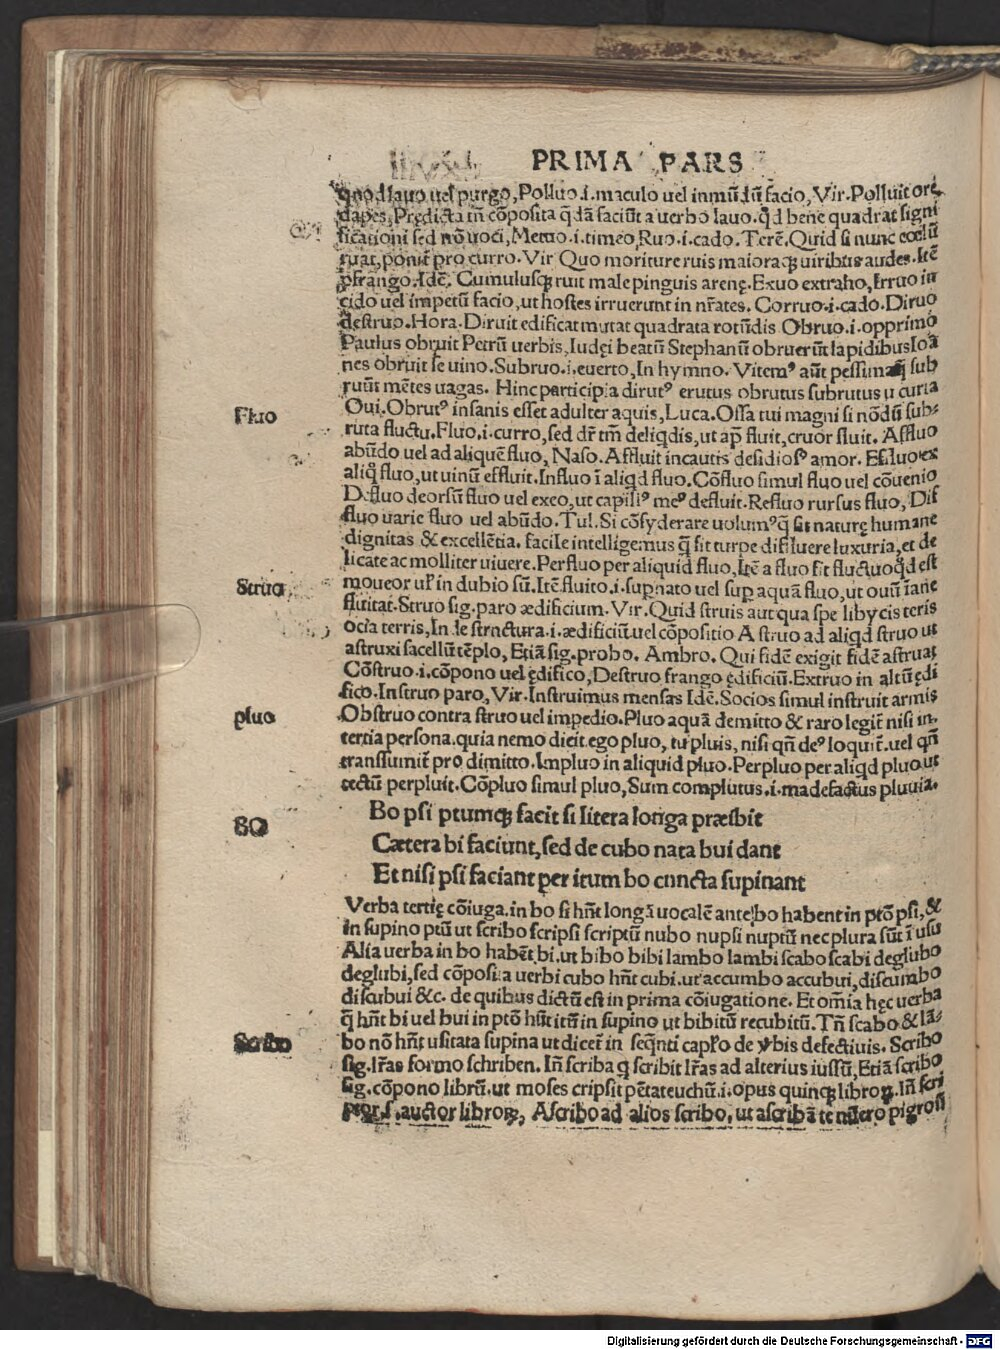 PRIMA PARS
quod lauo uel purgo, Polluo.i.maculo uel inmūdū facio, Vir.Polluit ore
dapes, Predicta tn̄ cōposita q̄dā faciūt a uerbo lauo. q̄d bene quadrat signi
ficationi sed nō uoci, Metuo.i.timeo, Ruo.i.cado. Terē. Quid si nunc coelū
ruat, ponit̄ pro curro. Vir Quo moriture ruis maioraqꝫ uiribus audes. Itē
ꝓfrango. Idē. Cumulusqꝫ ruit male pinguis arenę. Exuo extraho, Irruo in
cido uel impetū facio, ut hostes irruerunt in nr̄ates. Corruo.i.cado. Diruo
destruo. Hora. Diruit edificat mutat quadrata rotūdis Obruo.i.opprimo
Paulus obruit Petrū uerbis, Iudęi beatū Stephanū obruerūt lapidibus Ioā
nes obruit se uino. Subruo.i.euerto, In hymno. Vitemꝰ aūt pessima sub
ruūt mētes uagas. Hinc participia dirutꝰ erutus obrutus subrutus u curta
Oui. Obrutꝰ insanis esset adulter aquis, Luca. Ossa tui magni si nōdū sub-
Fluo
ruta fluctu. Fluo, i. curro, sed dr̄ tm̄ de liqdis, ut ap̄ fluit, cruor fluit. Affluo
abūdo uel ad aliquē fluo, Naso. Affluit incautis desidiosꝰ amor. Effluo ex
aliq̄ fluo, ut uinū effluit. Influo ī aliqd fluo. Cōfluo simul fluo uel cōuenio
Defluo deorsū fluo uel exeo, ut capillꝰ meꝰ defluit. Refluo rursus fluo, Dif
fluo uarie fluo uel abūdo. Tul. Si cōsyderare uolumꝰ q̄ sit naturę humane
dignitas & excellētia. facile intelligemus q̄ sit turpe difiluere luxuria, et de
licate ac molliter uiuere. Perfluo per aliquid fluo, Itē a fluo fit fluctuo q̄d est
Struo
moueor ul' in dubio sū. Itē fluito.i.supnato uel sup aquā fluo, ut ouū īane
fluitat. Struo sig. paro ædificium. Vir. Quid struis aut qua spe libycis teris
ocia terris, In de structura.i.ædificiū uel cōpositio A struo ad aliqd struo ut
astruxi sacellū tēplo, Etiā sig. probo. Ambro. Qui fidē exigit fidē astruat
Cōstruo.i.cōpono uel ędifico, Destruo frango ędificiū. Extruo in altū ędi
fico. Instruo paro, Vir. Instruimus mensas Idē. Socios simul instruit armis
pluo
Obstruo contra struo uel impedio. Pluo aquā demitto & raro legit̄ nisi in
tertia persona. quia nemo dicit ego pluo, tu pluis, nisi qn̄ deꝰ loquit̄. uel qn̄
transsumit̄ pro dimitto. Impluo in aliquid pluo. Perpluo per aliqd pluo ut
tectū perpluit. Cōpluo simul pluo, Sum complutus.i.madefactus pluuia.
BO
Bo psi ptumqꝫ facit si litera longa præsbit
Cætera bi faciunt, sed de cubo nata bui dant
Et nisi psi faciant per itum bo cuncta supinant
Verba tertię cōiuga. in bo si hn̄t longā uocalē ante bo habent in ptō psi, &
in supino ptū ut scribo scripsi scriptū nubo nupsi nuptū nec plura sūt ī usu
Alia uerba in bo habēt bi. ut bibo bibi lambo lambi scabo scabi deglubo
deglubi, sed cōposita uerbi cubo hn̄t cubi. ut accumbo accubui, discumbo
discubui &c. de quibus dictū est in prima cōiugatione. Et om̄ia hęc uerba
q̄ hn̄t bi uel bui in ptō hn̄t itū in supino ut bibitū recubitū. Tn̄ scabo & lā-
Scribo
bo nō hn̄t usitata supina ut dicet̄ in seqn̄ti caplo de ꝟbis defectiuis. Scribo
sig. lr̄as formo schriben. In̄ scriba q scribit lr̄as ad alterius iussū, Etiā scribo
sig. cōpono librū. ut moses cripsit pētateuchū.i.opus quinqꝫ libroꝝ. In̄ scri
ptor.s.auctor libroꝝ, Ascribo ad alios scribo, ut ascribā te nūero pigroꝝ
Digitalisierung gefördert durch die Deutsche Forschungsgemeinschaft - DFG